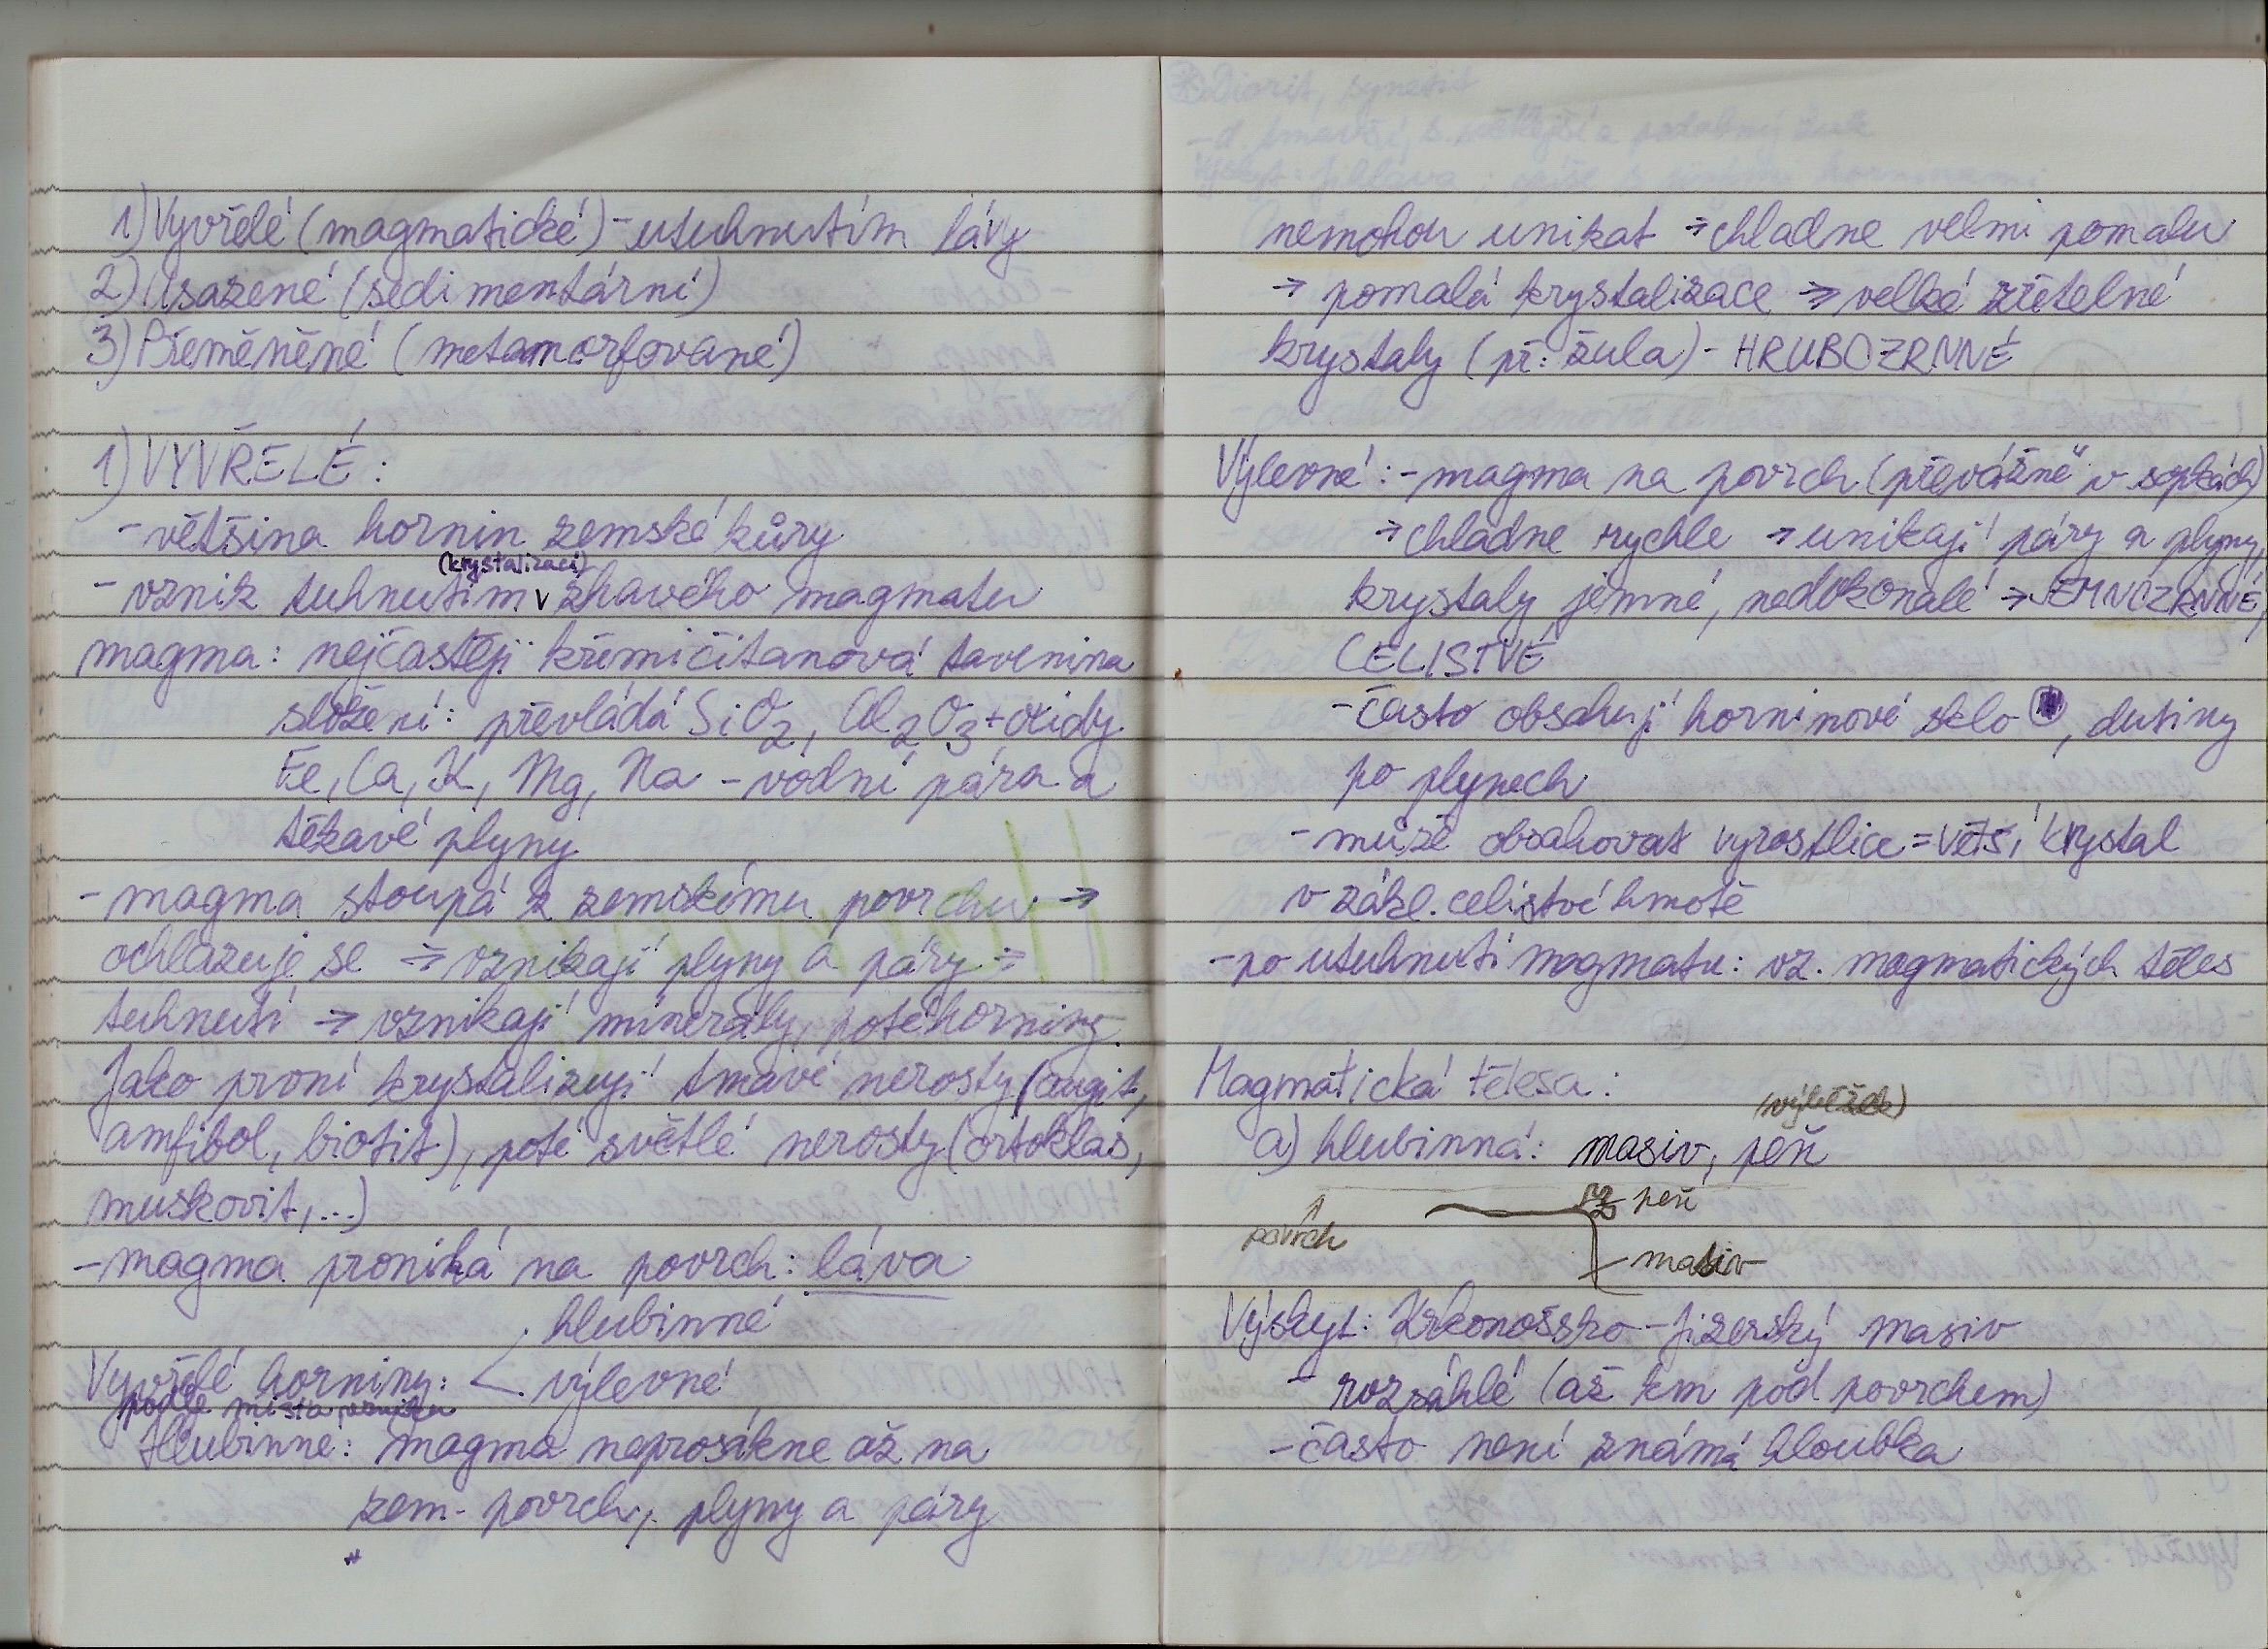 1) Vyvřelé (magmatické) - utuhnutím lávy
2) Usazené (sedimentární)
3) Přeměněné (metamorfované)
1) VYVŘELÉ:
- většina hornin zemské kůry
(krystalizací)
- vznik tuhnutím v žhavého magmatu
magma: nejčastěji křemičitanová tavenina
složení: převládá SiO2, Al2O3 + oxidy
Fe, Ca, K, Mg, Na - vodní pára a
těkavé plyny
- magma stoupá k zemskému povrchu →
ochlazuje se → vznikají plyny a páry →
tuhnutí → vznikají minerály, poté horniny.
Jako první krystalizují tmavé nerosty (augit,
amfibol, biotit), poté světlé nerosty (ortoklas,
muskovit,...)
- magma proniká na povrch: láva
hlubinné
Vyvřelé horniny: < výlevné
podle místa vzniku
Hlubinné: magma neprosákne až na
zem. povrch, plyny a páry
nemohou unikat → chladne velmi pomalu
→ pomalá krystalizace → velké zřetelné
krystaly (př: žula) - HRUBOZRNNÉ
Výlevné: - magma na povrch (převážně v sopkách)
→ chladne rychle → unikají páry a plyny,
krystaly jemné, nedokonalé → JEMNOZRNNÉ,
CELISTVÉ
- často obsahují horninové sklo, dutiny
po plynech
- může obsahovat vyrostlice = větší krystal
v zákl. celistvé hmotě
- po utuhnutí magmatu: vz. magmatických těles
Magmatická tělesa:
(výběžek)
a) hlubinná: masiv, peň
peň
povrch
masiv
Výskyt: Krkonošsko - Jizerský masiv
- rozsáhlé (až km pod povrchem)
- často není známá hloubka